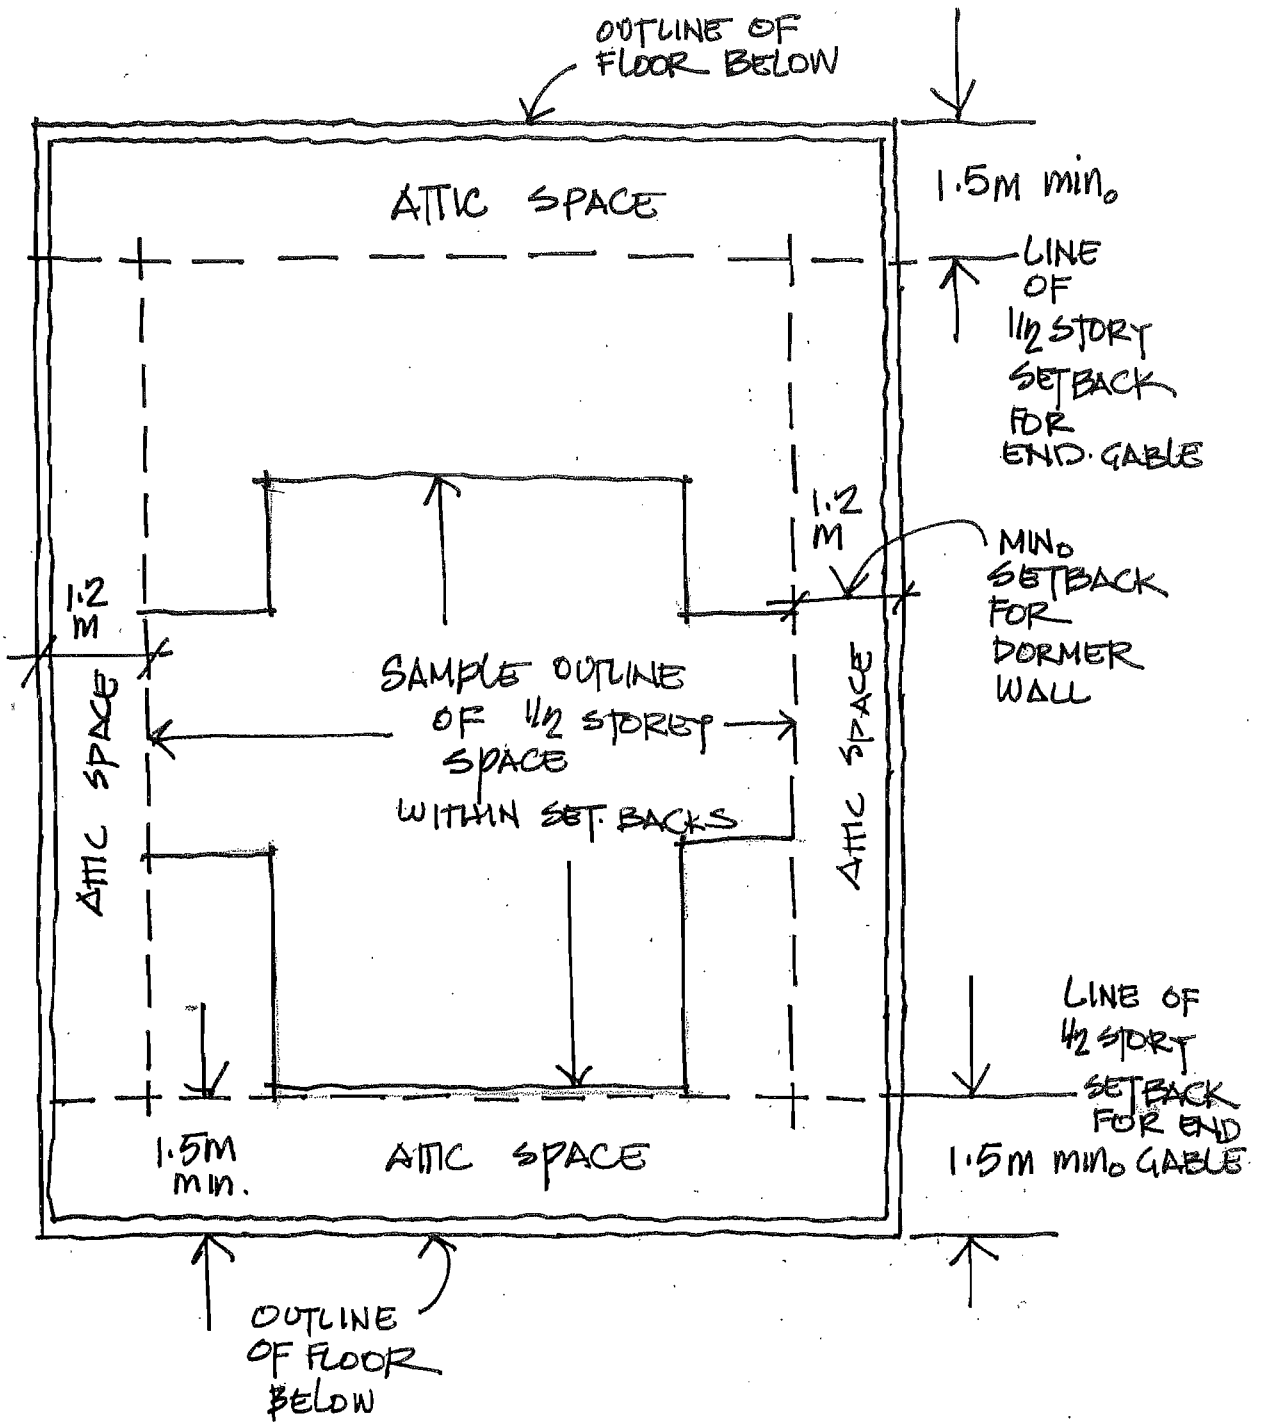 OUTLINE OF
FLOOR BELOW
1.5M min.
ATTIC SPACE
LINE
OF
1/2 STORY
SETBACK
FOR
END. GABLE
1.2
M
MIN.
SETBACK
FOR
DORMER
WALL
1.2
M
SAMPLE OUTLINE
OF 1/2 STOREY
SPACE
WITHIN SET. BACKS
ATTIC SPACE
ATTIC SPACE
LINE OF
1/2 STORY
SETBACK
FOR END
1.5M min. GABLE
1.5M
min.
ATTIC SPACE
OUTLINE
OF FLOOR
BELOW